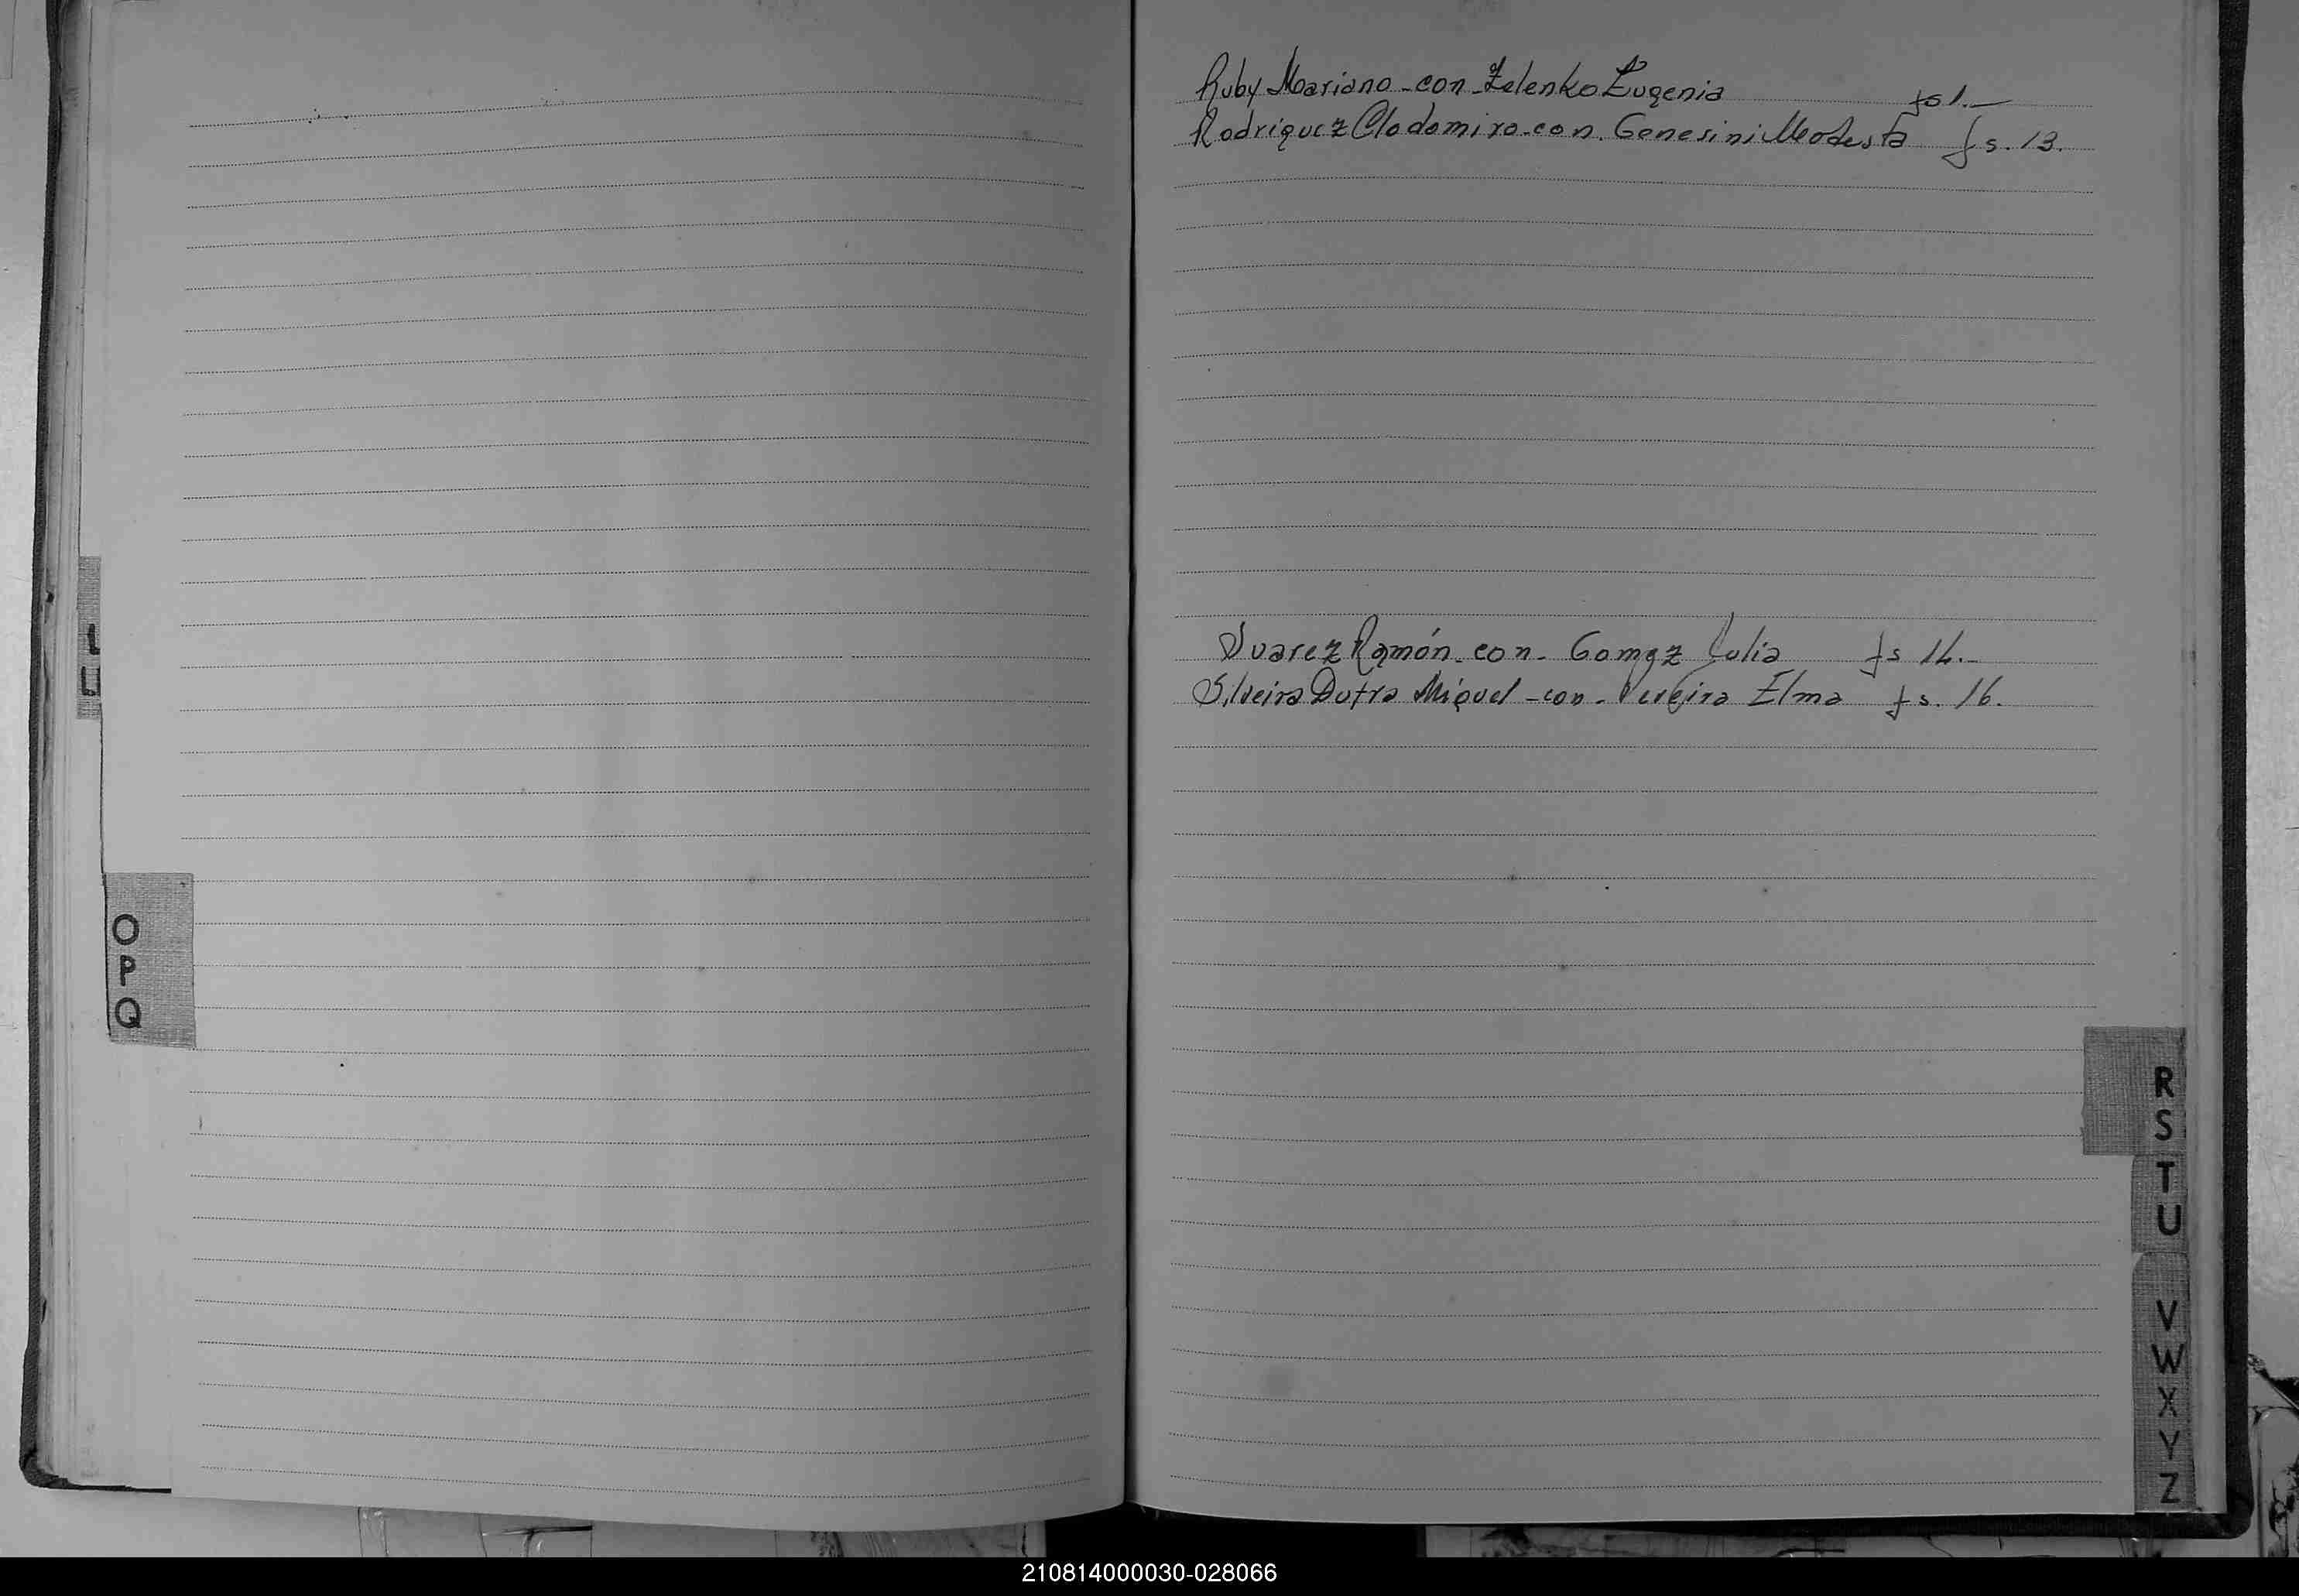 Ruby Mariano - con - Zelenko Eugenia fs 1.—
Rodriguez Clodomiro - con. Genesini Modesta fs. 13.
Suarez Ramón. con - Gomez Julia fs 14.-
Silveira Dutra Miguel - con - Pereira Elma fs. 16.
L
O
P
Q
R
S
T
U
V
W
X
Y
Z
210814000030-028066